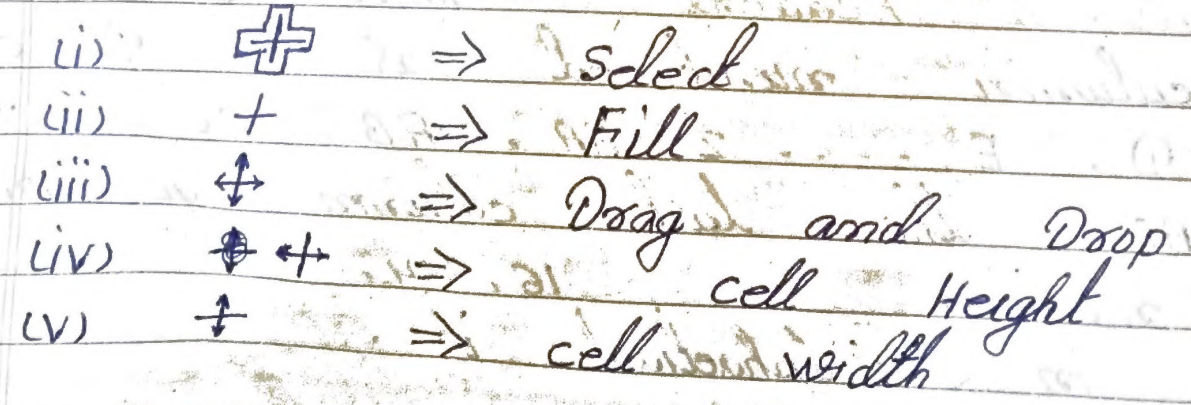 (i) ⇒ Select
(ii) + ⇒ Fill
(iii) ⇒ Drag and Drop
(iv) ⇒ cell Height
(v) ⇒ cell width